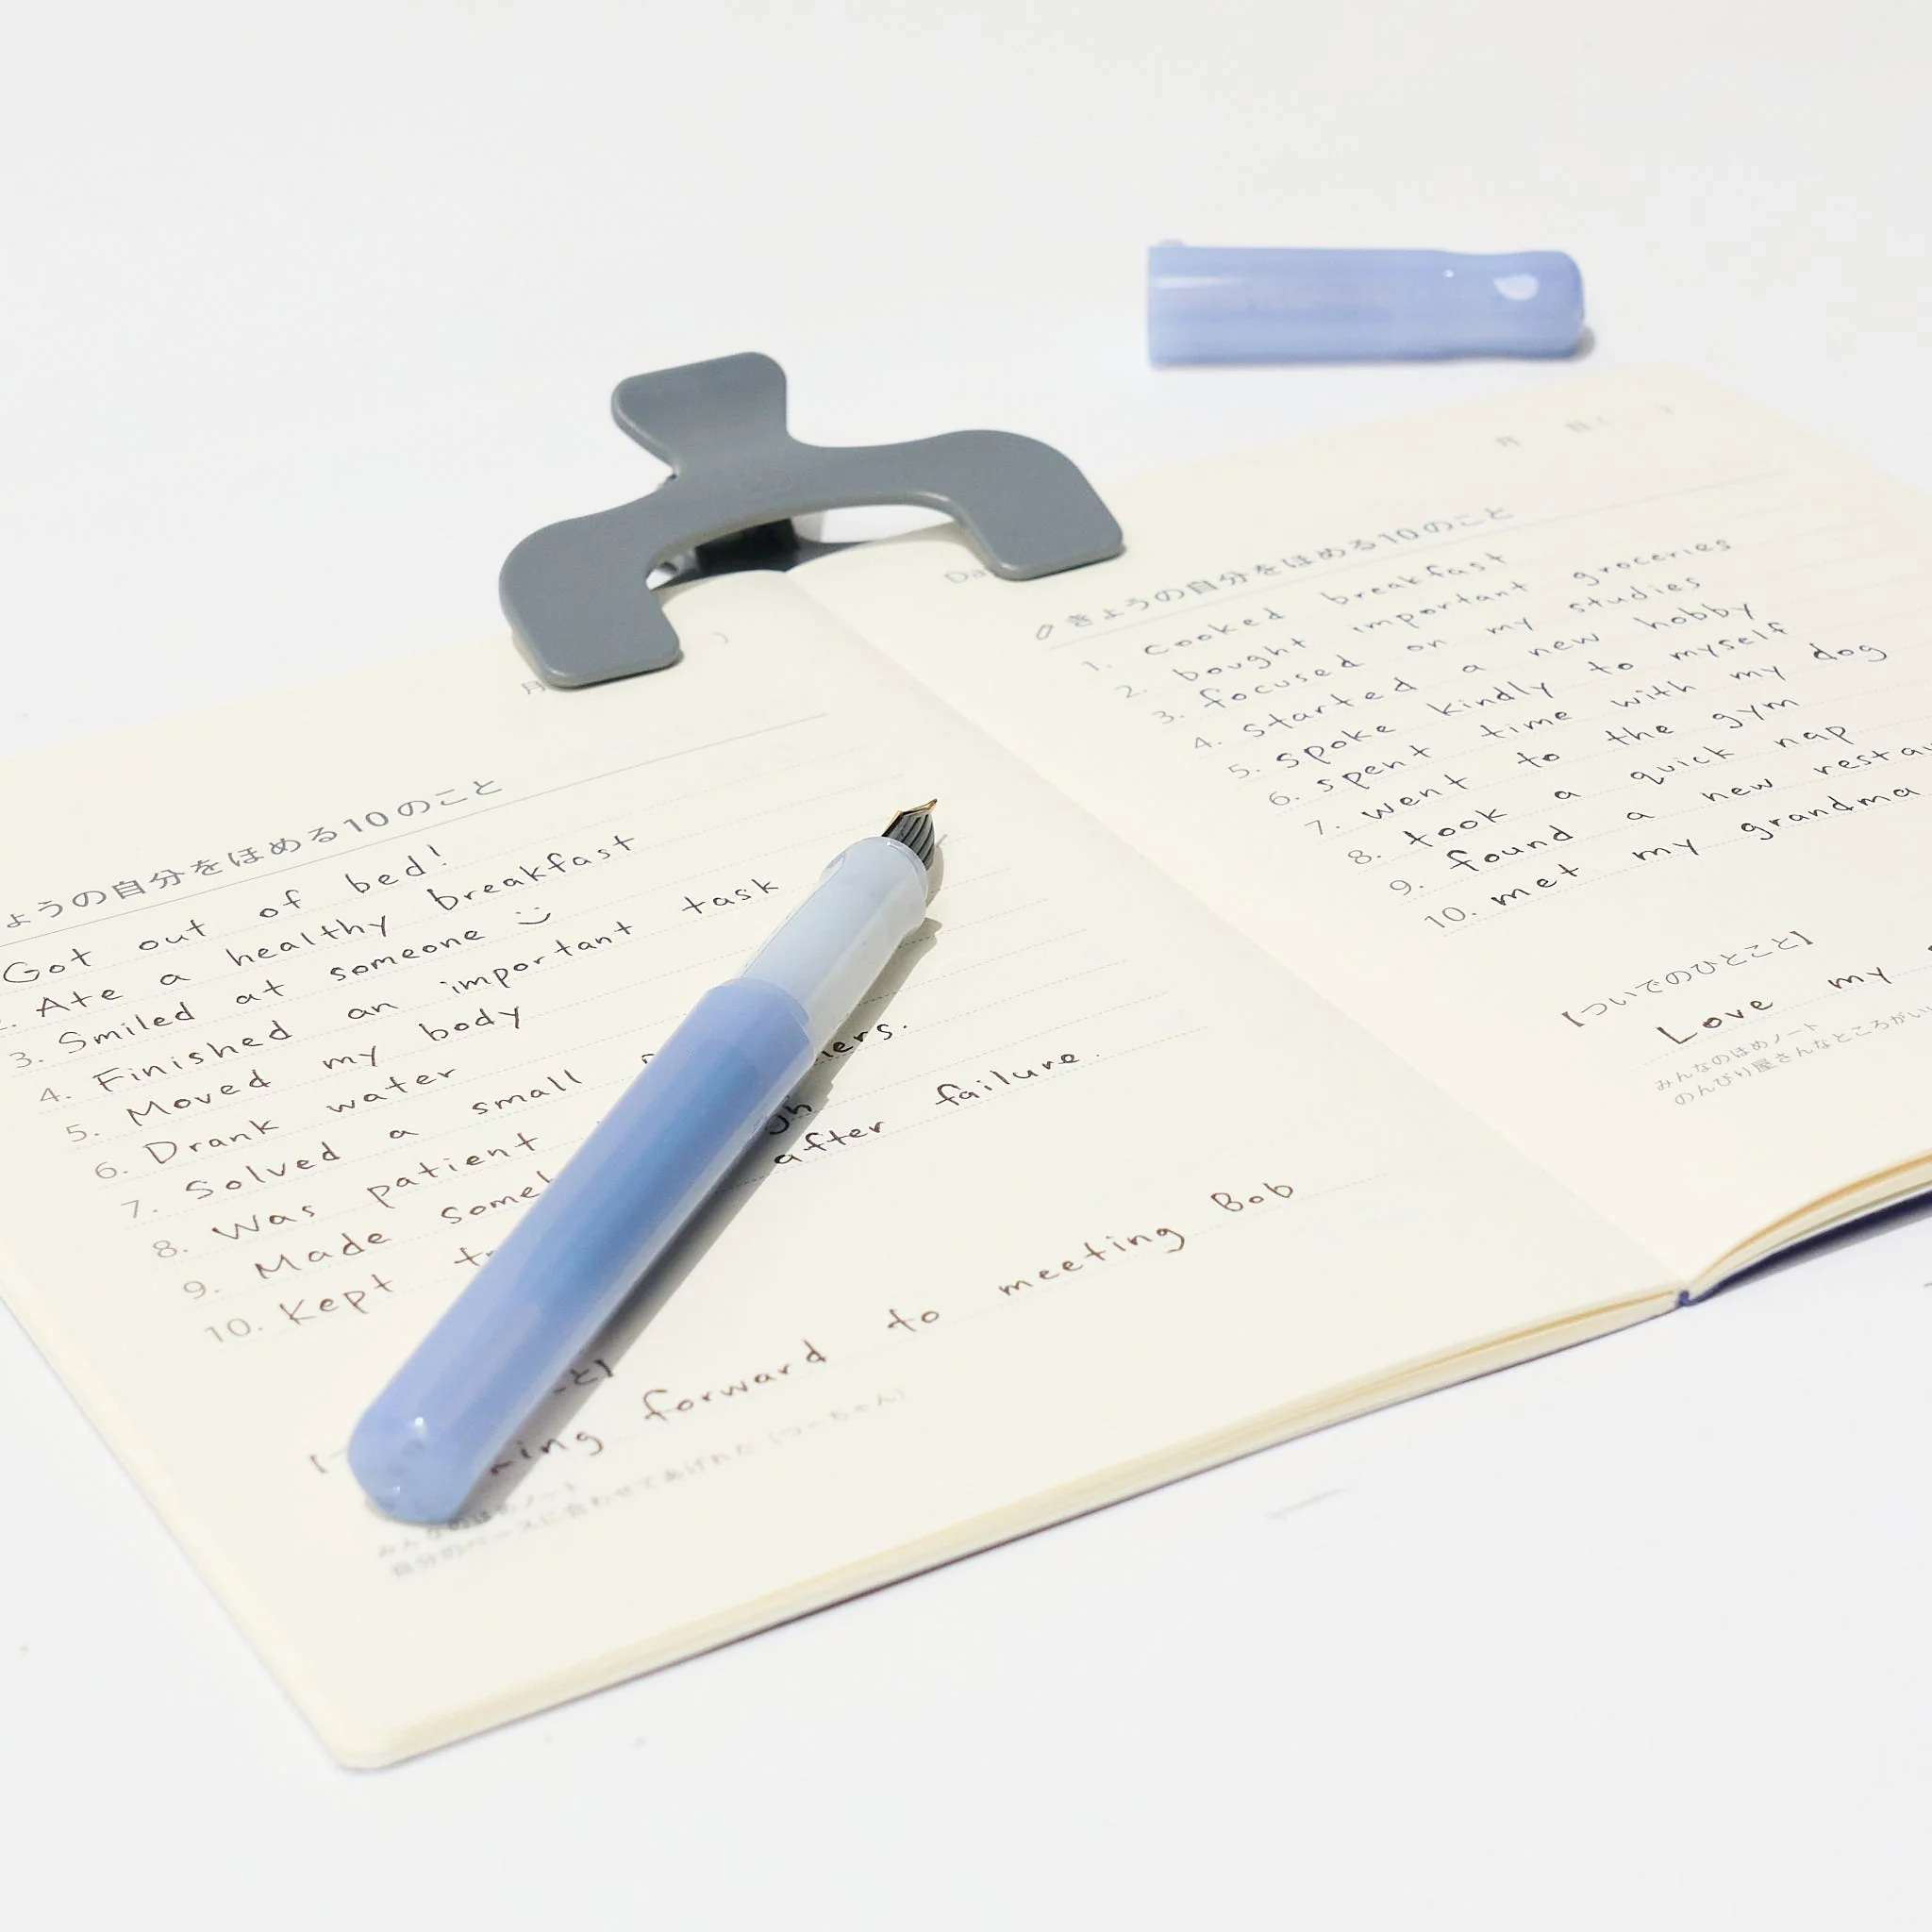 月
ょうの自分をほめる10のこと
Got out of bed!
2. Ate a healthy breakfast
3. Smiled at someone
4. Finished an important task
5. Moved my body
6. Drank water
7. Solved a small
8. Was patient
9. Made
10. Kept after failure.
forward to meeting Bob
自分のペースに合わせてあげれた (つーちゃん)
月 日(
きょうの自分をほめる10のこと
1. Cooked breakfast
2. bought important groceries
3. focused on my studies
4. Started a new hobby
5. Spoke kindly to myself
6. spent time with my dog
7. went to the gym
8. took a quick nap
9. found a new
10. met my grandma
【ついでのひとこと】
Love my
みんなのほめノート
のんびり屋さんなところがい